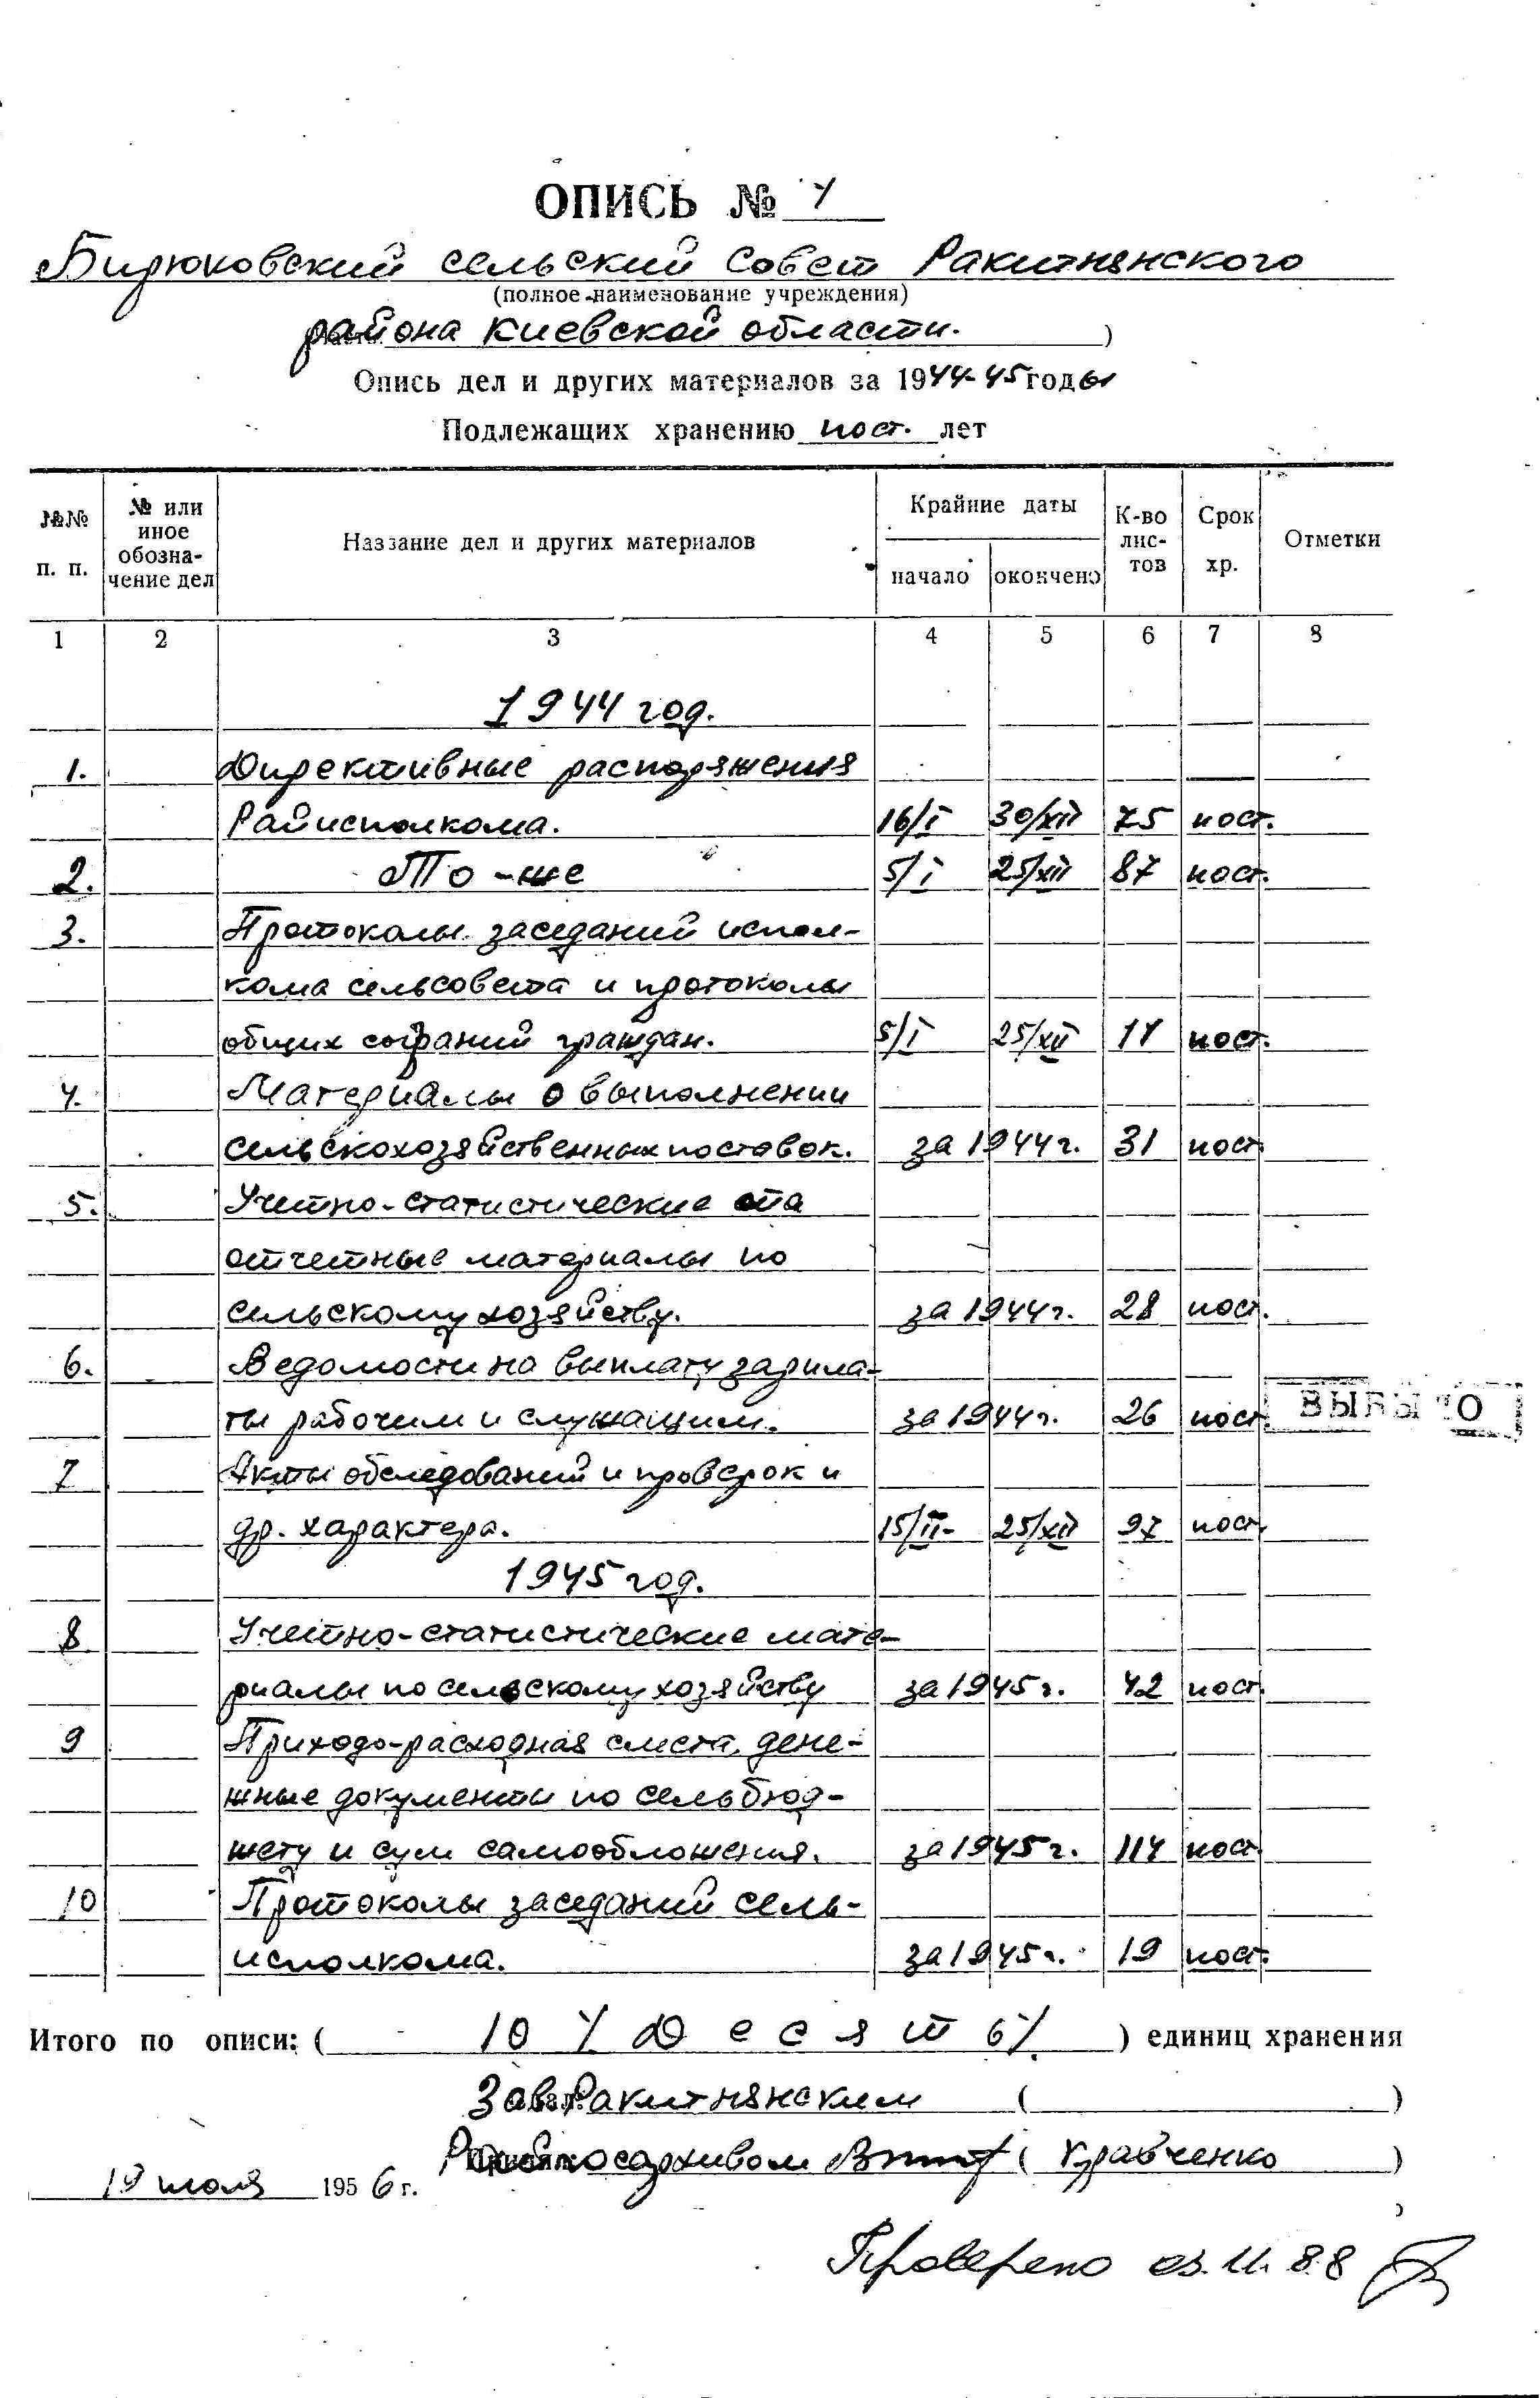 ОПИСЬ № 1
Бирюковский сельский Совет Ракитнянского
(полное наименование учреждения)
района Киевской области. )
Опись дел и других материалов за 1944-45 годы
Подлежащих хранению пост. лет
№№ п. п. № или иное обозна- чение дел Название дел и других материалов Крайние даты начало окончено К-во лис- тов Срок хр. Отметки
1 2 3 4 5 6 7 8
1944 год.
1. Директивные распоряжения
Райисполкома. 16/I 30/XII 75 пост.
2. То-же 5/I 25/XII 87 пост.
3. Протоколы заседаний испол-
кома сельсовета и протоколы
общих собраний граждан. 5/I 25/XII 11 пост.
4. Материалы о выполнении
сельскохозяйственных поставок. за 1944 г. 31 пост.
5. Учетно-статистические
отчетные материалы по
сельскому хозяйству. за 1944 г. 28 пост.
6. Ведомости на выплату зарпла-
ты рабочим и служащим. за 1944 г. 26 пост. ВЫБЫЛО
7 Акты обследований и проверок и
др. характера. 15/II- 25/XII 97 пост.
1945 год.
8 Учетно-статистические мате-
риалы по сельскому хозяйству за 1945 г. 42 пост.
9 Приходо-расходная смета, дене-
жные документы по сельбюд-
жету и сум самообложения. за 1945 г. 114 пост.
10 Протоколы заседаний сель-
исполкома. за 1945 г. 19 пост.
Итого по описи: ( 10 / Десять / ) единиц хранения
Зав. Ракитнянским ( )
Райгосархивом ( Кравченко )
19 июля 1956 г.
Проверено 03.11.88